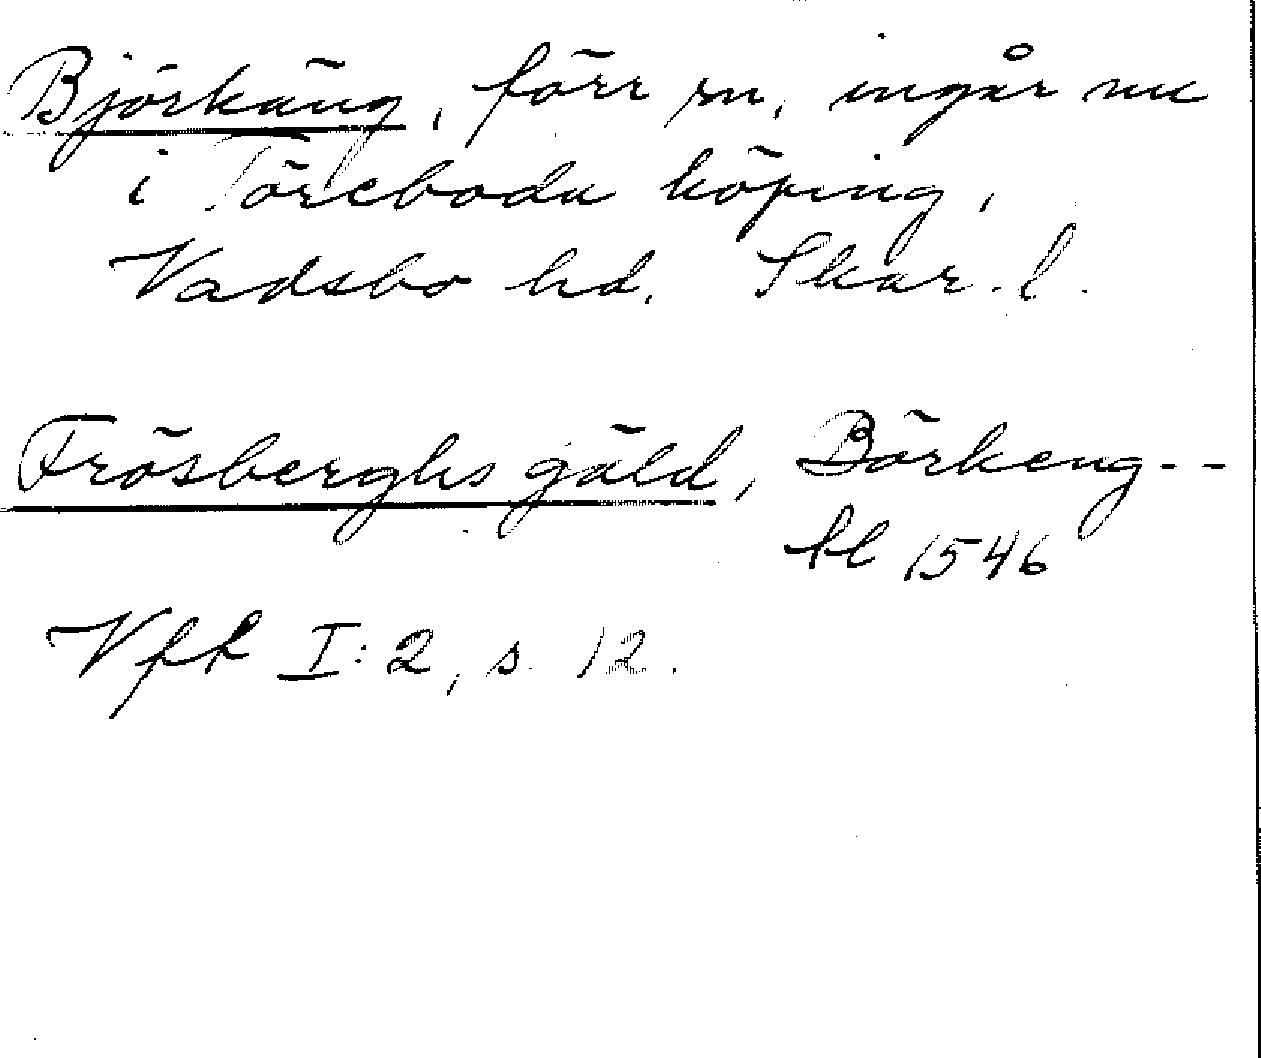 Björkäng, förr sn, ingår nu
i Töreboda köping,
Vadsbo hd. Skar. l.
Frösberghs gäld, Börkeng--
hl 1546
Vff I:2, s. 12.